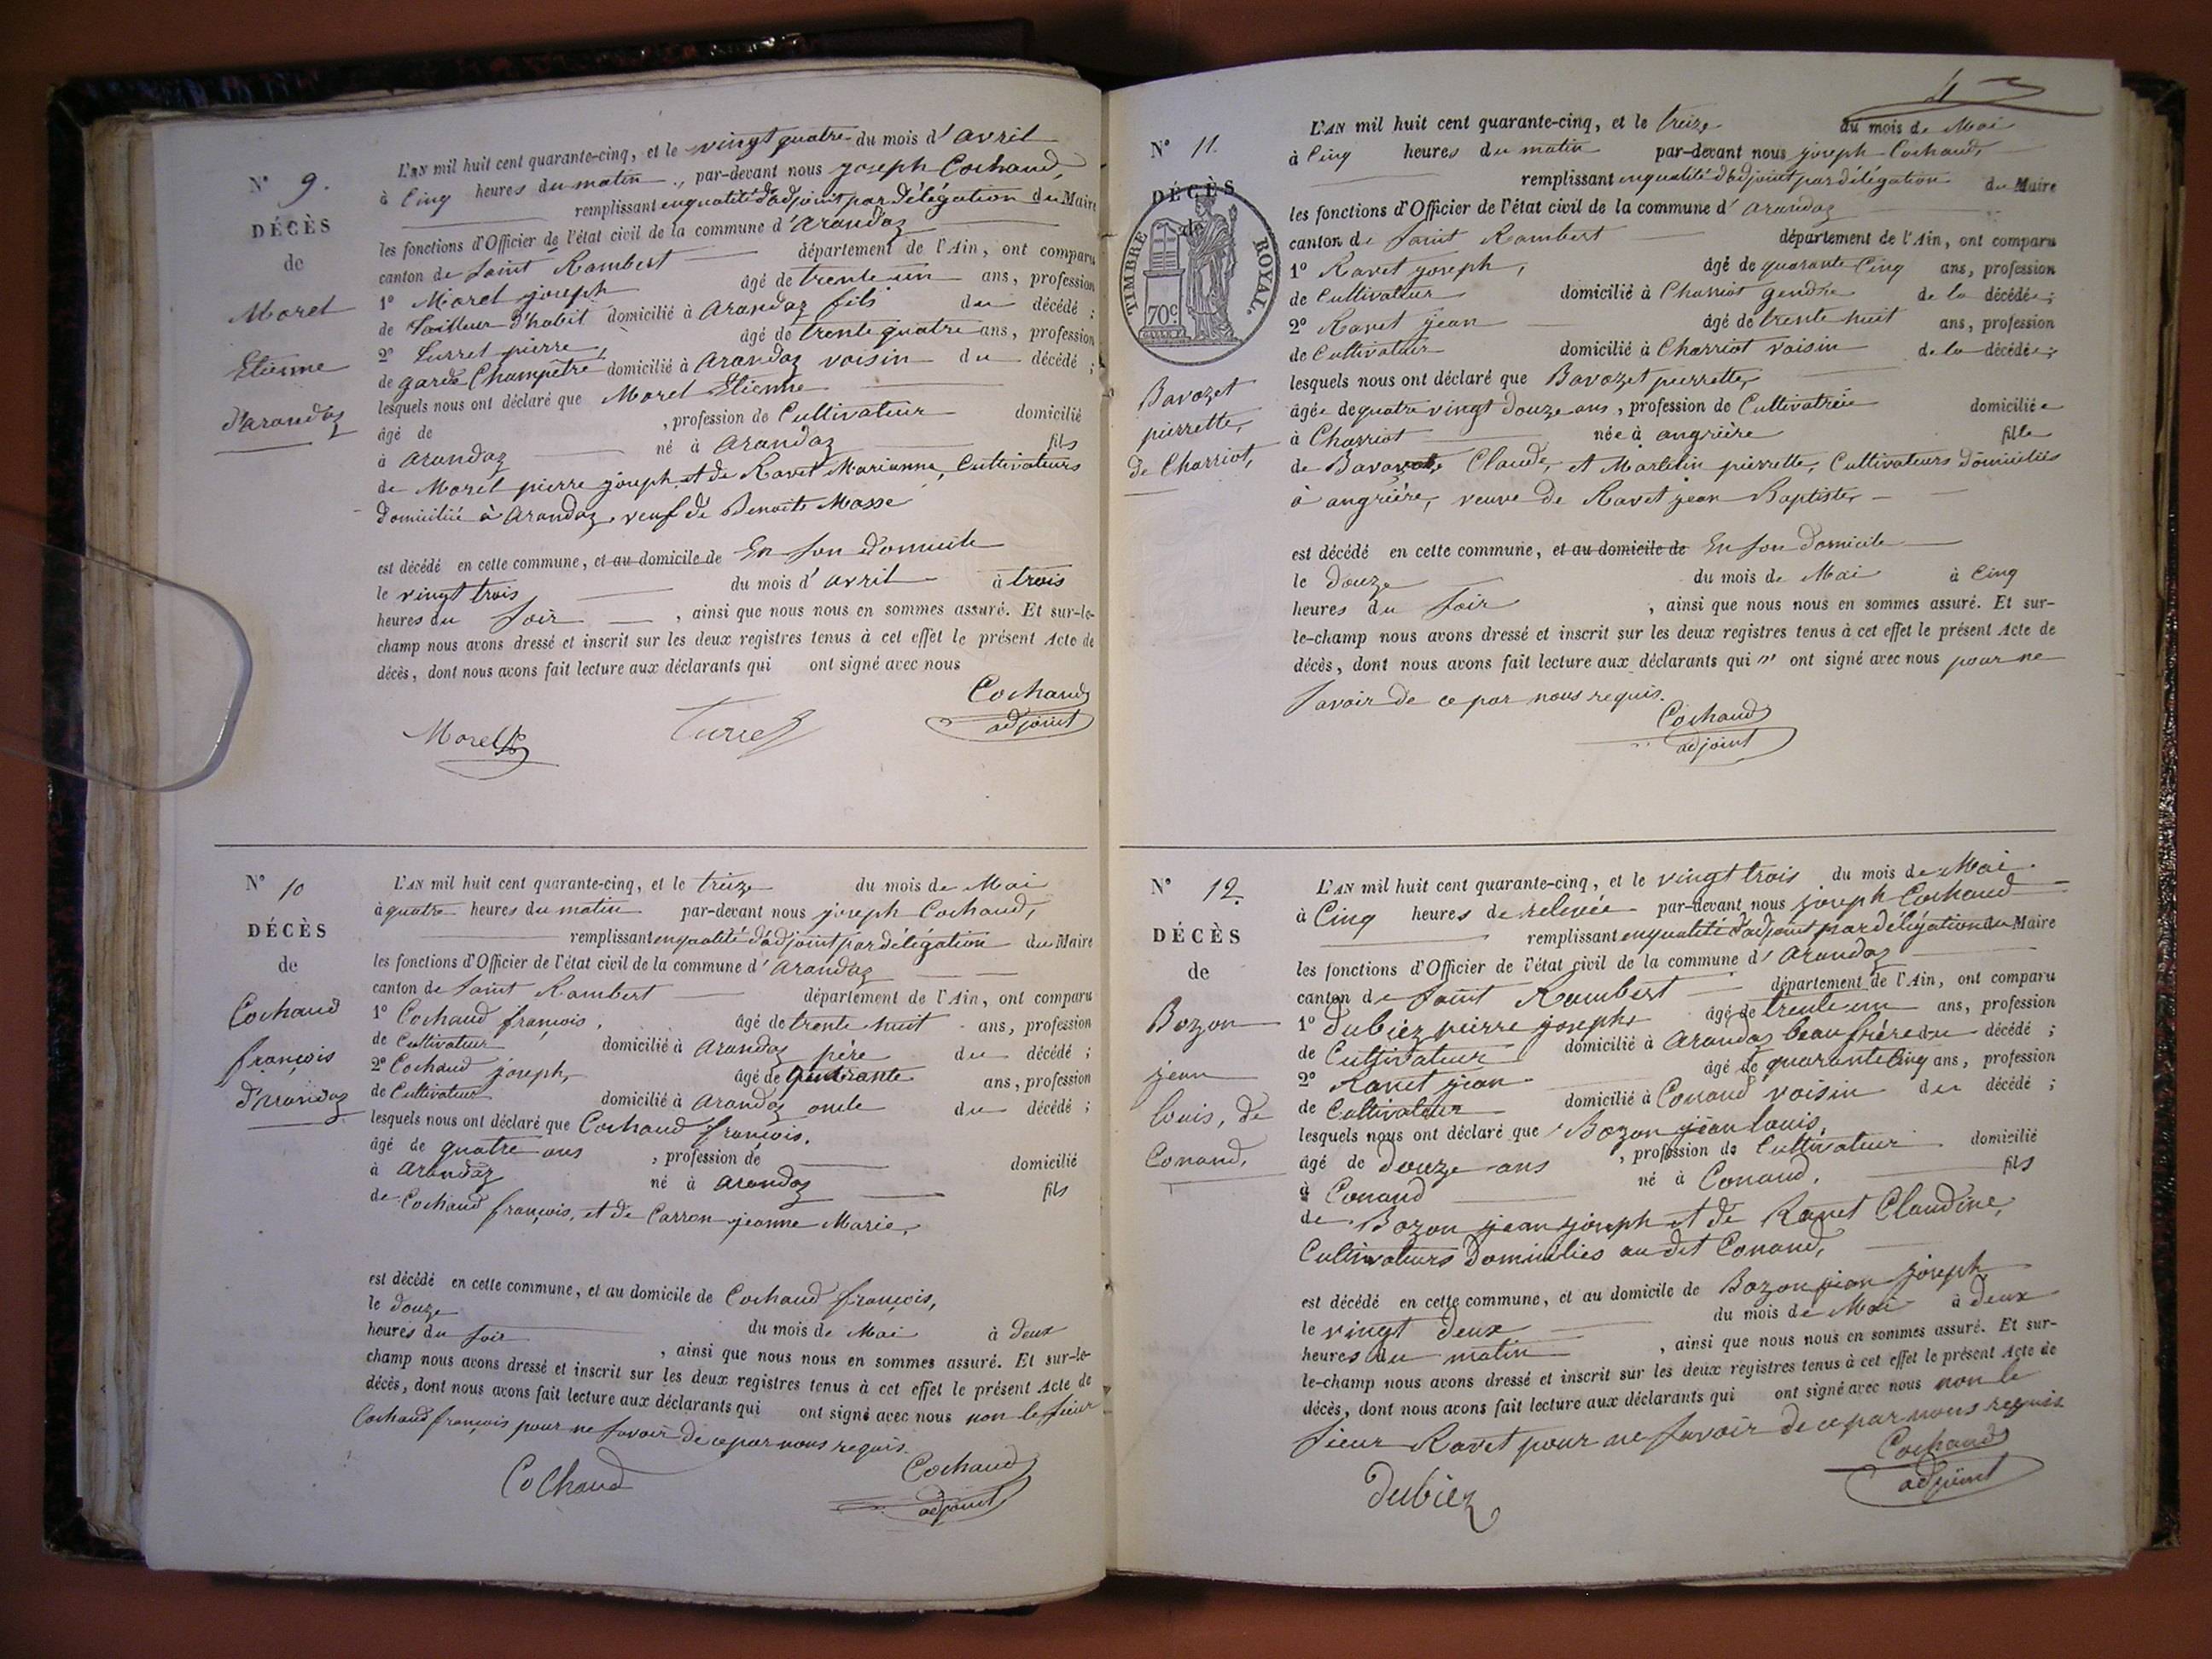 N° 9.
DÉCÈS
de
Morel
Etienne
d'arandaz
L'AN mil huit cent quarante-cinq, et le vingt quatre du mois d'avril
à Cinq heures du matin, par-devant nous joseph Cochaud,
remplissant en qualité d'adjoint par délégation du Maire
les fonctions d'Officier de l'état civil de la commune d'Arandaz
canton de Saint Rambert département de l'Ain, ont comparu
1° Morel joseph âgé de trente un ans, profession
de Tailleur d'habit domicilié à Arandaz fils du décédé ;
2° Turrel pierre, âgé de trente quatre ans, profession
de garde Champêtre domicilié à Arandaz voisin du décédé ;
lesquels nous ont déclaré que Morel Etienne
âgé de , profession de Cultivateur domicilié
à Arandaz né à Arandaz fils
de Morel pierre joseph et de Ravet Marianne, Cultivateurs
domicilié à Arandaz, veuf de Benoite Masse
est décédé en cette commune, et au domicile de En son domicile
le vingt trois du mois d'avril à trois
heures du soir , ainsi que nous nous en sommes assuré. Et sur-le-
champ nous avons dressé et inscrit sur les deux registres tenus à cet effet le présent Acte de
décès, dont nous avons fait lecture aux déclarants qui ont signé avec nous
Cochaud
adjoint
Morel
Turrel
N° 10
DÉCÈS
de
Cochaud
françois
d'arandaz
L'AN mil huit cent quarante-cinq, et le treize du mois de Mai
à quatre heures du matin par-devant nous joseph Cochaud,
remplissant en qualité d'adjoint par délégation du Maire
les fonctions d'Officier de l'état civil de la commune d'Arandaz
canton de Saint Rambert département de l'Ain, ont comparu
1° Cochaud françois, âgé de trente huit ans, profession
de Cultivateur domicilié à Arandaz père du décédé ;
2° Cochaud joseph, âgé de quarante ans, profession
de Cultivateur domicilié à Arandaz oncle du décédé ;
lesquels nous ont déclaré que Cochaud françois,
âgé de quatre ans , profession de domicilié
à Arandaz né à Arandaz fils
de Cochaud françois, et de Carron jeanne Marie,
est décédé en cette commune, et au domicile de Cochaud françois,
le douze du mois de Mai à deux
heures du soir , ainsi que nous nous en sommes assuré. Et sur-le-
champ nous avons dressé et inscrit sur les deux registres tenus à cet effet le présent Acte de
décès, dont nous avons fait lecture aux déclarants qui ont signé avec nous non le sieur
Cochaud françois pour ne savoir de ce par nous requis.
Cochaud
Cochaud
adjoint
4
N° 11.
DÉCÈS
de
TIMBRE ROYAL
70c.
Bavozet
pierrette,
de Charriot,
L'AN mil huit cent quarante-cinq, et le treize du mois de Mai
à Cinq heures du matin par-devant nous joseph Cochaud,
remplissant en qualité d'adjoint par délégation du Maire
les fonctions d'Officier de l'état civil de la commune d'Arandaz
canton de Saint Rambert département de l'Ain, ont comparu
1° Ravet joseph, âgé de quarante Cinq ans, profession
de Cultivateur domicilié à Charriot gendre de la décédée ;
2° Ravet jean âgé de trente huit ans, profession
de Cultivateur domicilié à Charriot voisin de la décédée ;
lesquels nous ont déclaré que Bavozet pierrette,
âgée de quatre vingt douze ans, profession de Cultivatrice domiciliée
à Charriot née à angrière fille
de Bavozet Claude, et Martelin pierrette, Cultivateurs domiciliés
à angrière, veuve de Ravet jean Baptiste,
est décédé en cette commune, et au domicile de En son domicile
le douze du mois de Mai à Cinq
heures du soir , ainsi que nous nous en sommes assuré. Et sur-
le-champ nous avons dressé et inscrit sur les deux registres tenus à cet effet le présent Acte de
décès, dont nous avons fait lecture aux déclarants qui n' ont signé avec nous pour ne
savoir de ce par nous requis.
Cochaud
adjoint
N° 12.
DÉCÈS
de
Bozon
jean
louis, de
Conand,
L'AN mil huit cent quarante-cinq, et le vingt trois du mois de Mai
à Cinq heures de relevée par-devant nous joseph Cochaud
remplissant en qualité d'adjoint par délégation du Maire
les fonctions d'Officier de l'état civil de la commune d'Arandaz
canton de Saint Rambert département de l'Ain, ont comparu
1° Dubiez pierre joseph, âgé de trente un ans, profession
de Cultivateur domicilié à Arandaz beau frère du décédé ;
2° Ravet jean âgé de quarante Cinq ans, profession
de Cultivateur domicilié à Conand voisin du décédé ;
lesquels nous ont déclaré que Bozon jean louis,
âgé de douze ans , profession de Cultivateur domicilié
à Conand né à Conand, fils
de Bozon jean joseph et de Ravet Claudine,
Cultivateurs domiciliés au dit Conand,
est décédé en cette commune, et au domicile de Bozon jean joseph
le vingt deux du mois de Mai à deux
heures du matin , ainsi que nous nous en sommes assuré. Et sur-
le-champ nous avons dressé et inscrit sur les deux registres tenus à cet effet le présent Acte de
décès, dont nous avons fait lecture aux déclarants qui ont signé avec nous non le
sieur Ravet pour ne savoir de ce par nous requis
Cochaud
adjoint
Dubiez